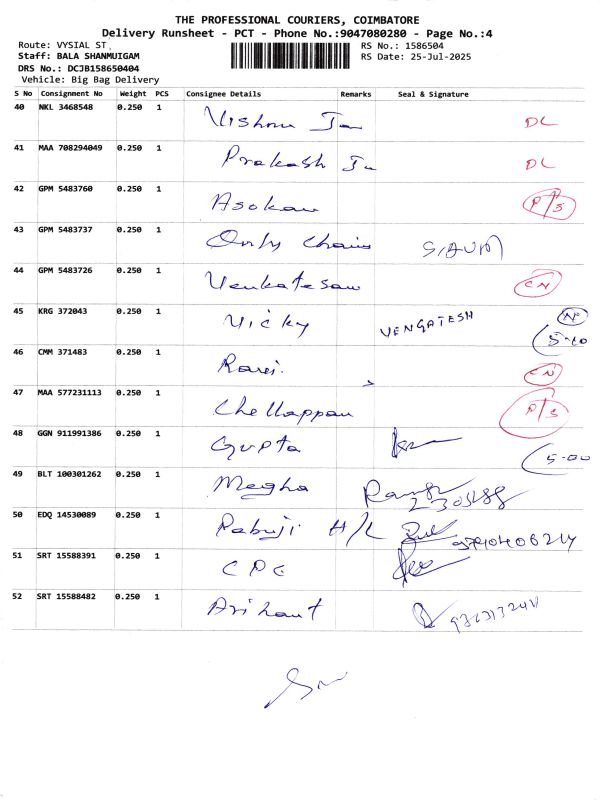 THE PROFESSIONAL COURIERS, COIMBATORE
Delivery Runsheet - PCT - Phone No.:9047080280 - Page No.:4
Route: VYSIAL ST. RS No.: 1586504
Staff: BALA SHANMUIGAM RS Date: 25-Jul-2025
DRS No.: DCJB158650404
Vehicle: Big Bag Delivery
S No Consignment No Weight PCS Consignee Details Remarks Seal & Signature
40 NKL 3468548 0.250 1 Vishnu DL
41 MAA 708294049 0.250 1 Prakash DL
42 GPM 5483760 0.250 1 Asokan P/S
43 GPM 5483737 0.250 1 Only Chains
44 GPM 5483726 0.250 1 Venkatesan CN
45 KRG 372043 0.250 1 Vicky VENGATESH N 5-10
46 CMM 371483 0.250 1 CN
47 MAA 577231113 0.250 1 Chellappan P/S
48 GGN 911991386 0.250 1 Gupta 5-00
49 BLT 100301262 0.250 1 Megha
50 EDQ 14530089 0.250 1 Pabuji H/L
51 SRT 15588391 0.250 1 CPC
52 SRT 15588482 0.250 1 Arihant